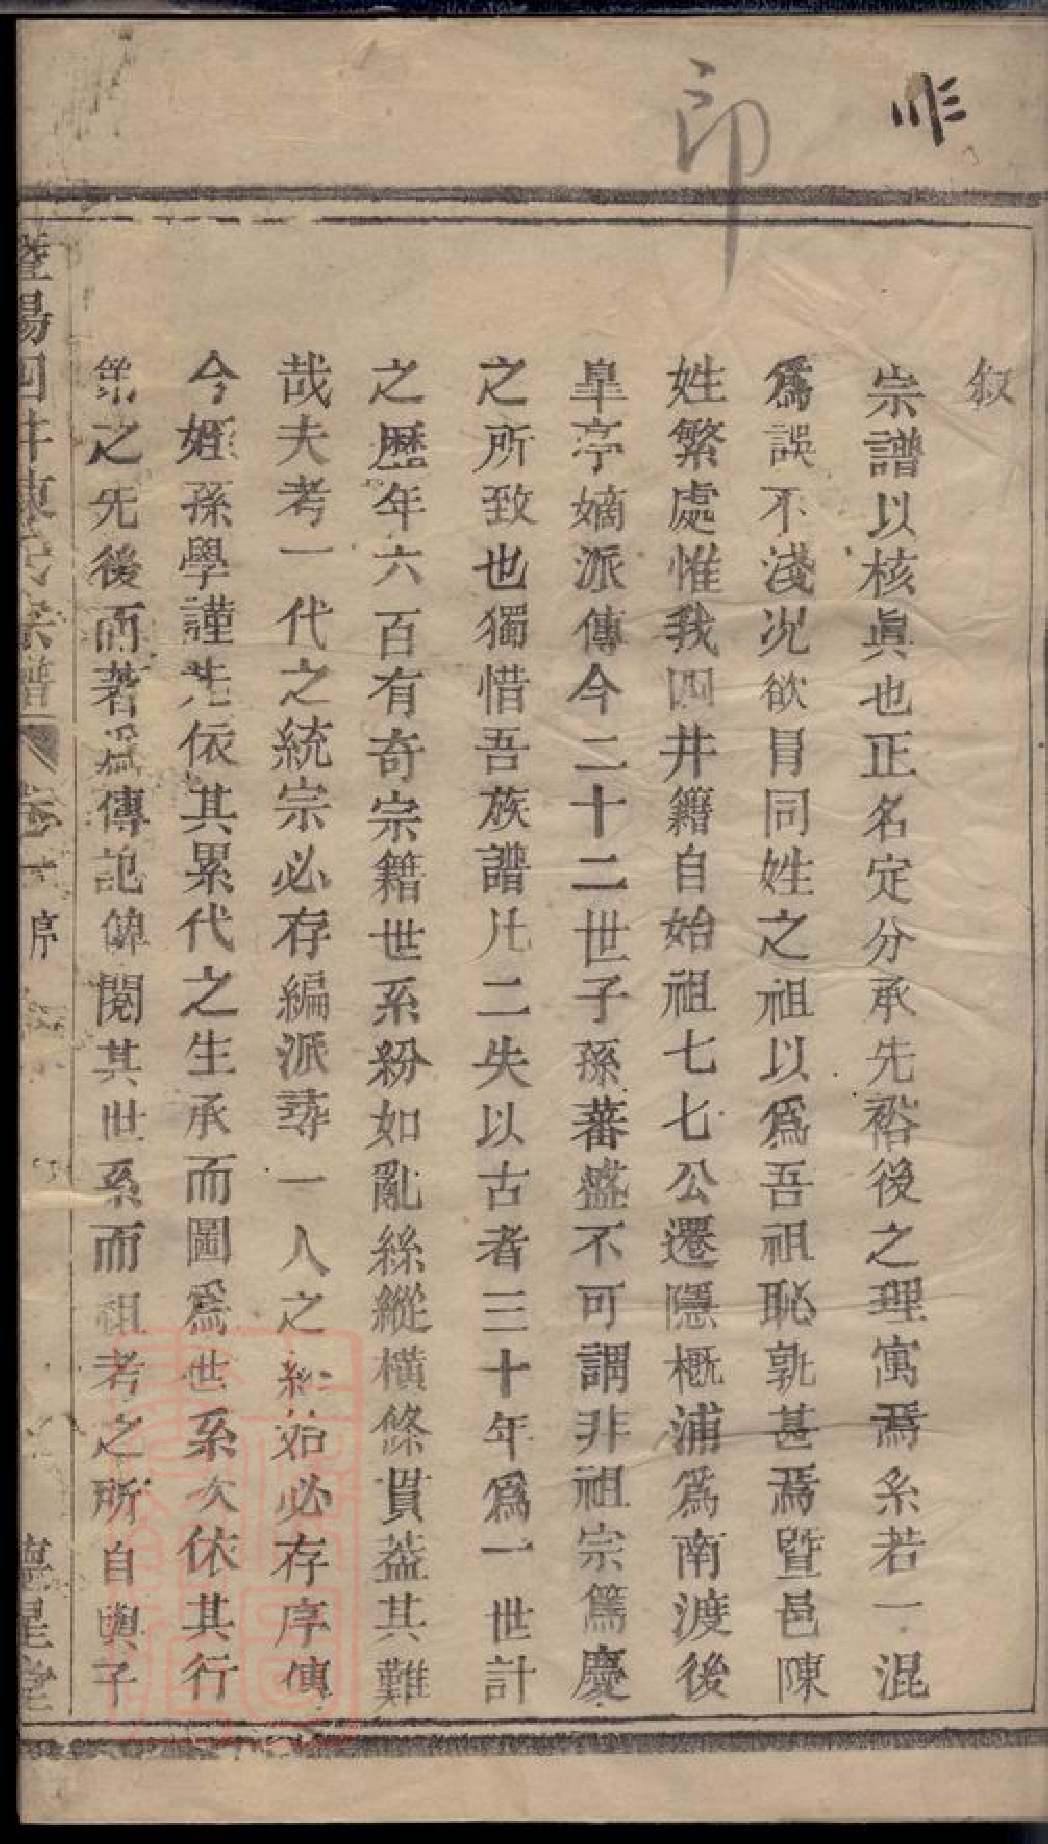 印
叙
宗譜以核眞也正名定分承先裕後之理寓焉系若一混
爲誤不淺况欲冐同姓之祖以爲吾祖恥孰甚焉暨邑陳
姓繁處惟我四井籍自始祖七七公遷隱概浦爲南渡後
皐亭嫡派傳今二十二世子孫蕃盛不可謂非祖宗篤慶
之所致也獨惜吾族譜凡二失以古者三十年爲一世計
之歷年六百有奇宗籍世系紛如亂絲縱橫絛貫葢其難
哉夫考一代之統宗必存編派尋一人之終始必存序傳
今姪孫學謹先依其累代之生承而圖爲世系次依其行
第之先後而著爲傳記俾閱其世系而祖考之所自與子
暨陽四井陳氏宗譜 卷一 序 德星堂